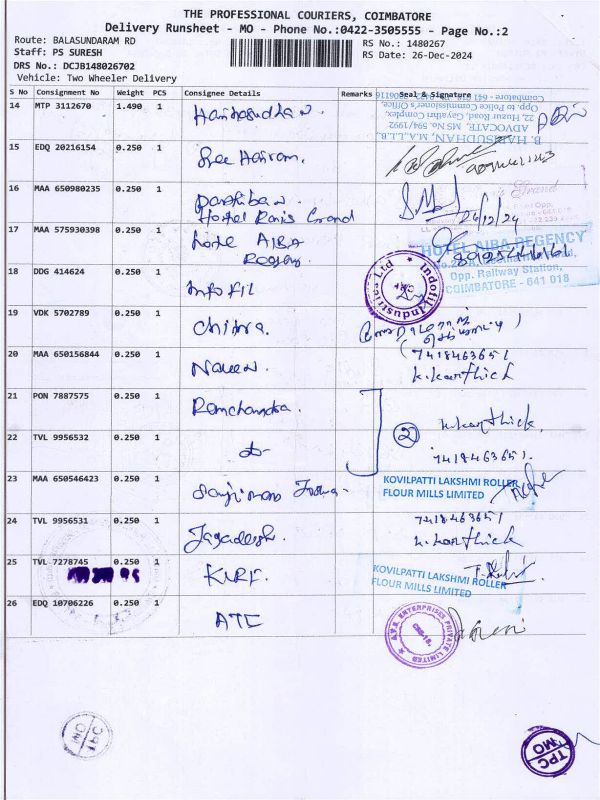 THE PROFESSIONAL COURIERS, COIMBATORE
Delivery Runsheet - MO - Phone No.:0422-3505555 - Page No.:2
Route: BALASUNDARAM RD
RS No.: 1480267
Staff: PS SURESH
RS Date: 26-Dec-2024
DRS No.: DCJB148026702
Vehicle: Two Wheeler Delivery
S No Consignment No Weight PCS Consignee Details Remarks Seal & Signature
14 MTP 3112670 1.490 1 Harihasudhan
B. HARISUDHAN, M.A.,LL.B.,
ADVOCATE, MS. No. 594/1992
22, Huzur Road, Gayathri Complex,
Opp. to Police Commissioner's Office,
15 EDQ 20216154 0.250 1 Sree Hariram.
16 MAA 650980235 0.250 1 Parthiban.
Hostel Ravis Grand
26/12/24
17 MAA 575930398 0.250 1 Hote AIBA
Regency
HOTEL AIBA REGENCY
Opp. Railway Station,
COIMBATORE - 641 018
18 DDG 414624 0.250 1 Infofil
Indofil Industries Ltd
19 VDK 5702789 0.250 1 Chitra.
20 MAA 650156844 0.250 1 Naveen. 7418463651
K.Karthick
21 PON 7887575 0.250 1 Ramchandra. K.Karthick.
22 TVL 9956532 0.250 1 do 2 7418463651.
23 MAA 650546423 0.250 1
KOVILPATTI LAKSHMI ROLLER
FLOUR MILLS LIMITED
24 TVL 9956531 0.250 1 Jagadeesh. 7418463651
K.Karthick
25 TVL 7278745 0.250 1 KLRF.
KOVILPATTI LAKSHMI ROLLER
FLOUR MILLS LIMITED
26 EDQ 10706226 0.250 1 ATE
ENTERPRISES PRIVATE LIMITED
CBE-18.
TPC
MO